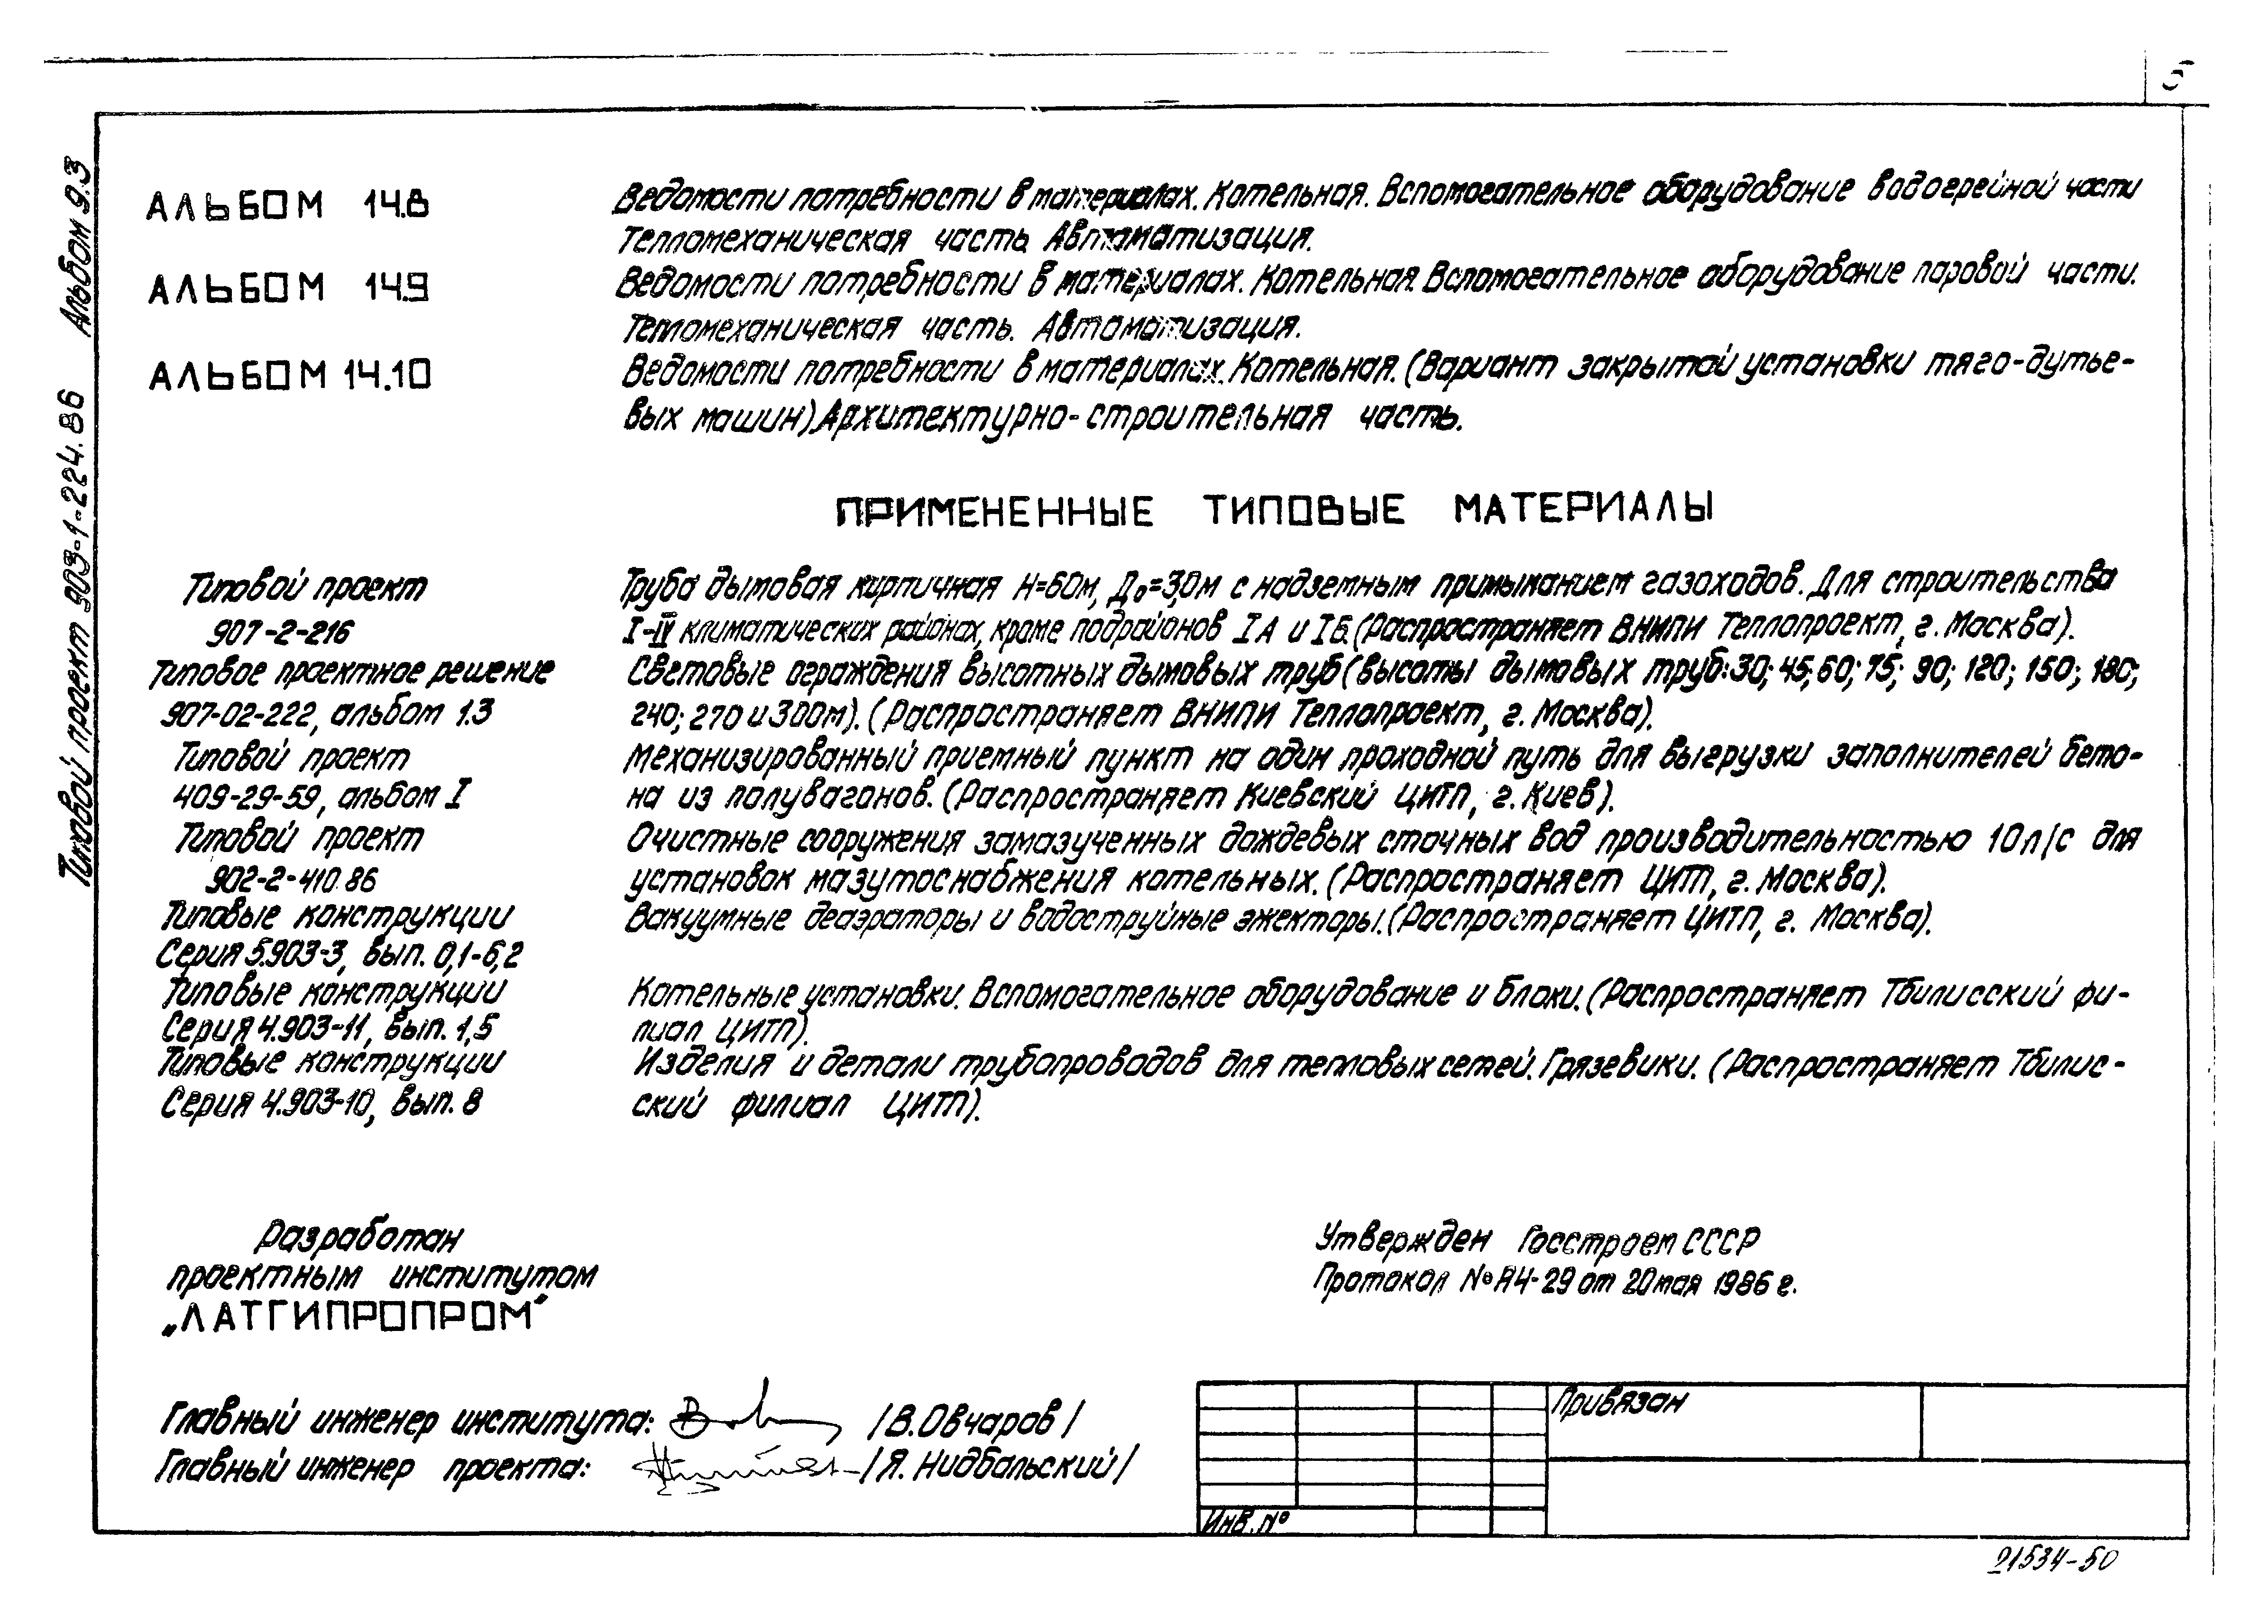 5
Типовой проект 903-1-224.86 Альбом 9.3
АЛЬБОМ 14.8 Ведомости потребности в материалах. Котельная. Вспомогательное оборудование водогрейной части
Тепломеханическая часть. Автоматизация.
АЛЬБОМ 14.9 Ведомости потребности в материалах. Котельная. Вспомогательное оборудование паровой части.
Тепломеханическая часть. Автоматизация.
АЛЬБОМ 14.10 Ведомости потребности в материалах. Котельная. (Вариант закрытой установки тяго-дутье-
вых машин). Архитектурно-строительная часть.
ПРИМЕНЕННЫЕ ТИПОВЫЕ МАТЕРИАЛЫ
Типовой проект Труба дымовая кирпичная Н=60м, До=3,0м с надземным примыканием газоходов. Для строительства
907-2-216 I-IV климатических районах, кроме подрайонов IА и IБ. (Распространяет ВНИПИ Теплопроект, г. Москва).
Типовое проектное решение Световые ограждения высотных дымовых труб (высоты дымовых труб: 30; 45; 60; 75; 90; 120; 150; 180;
907-02-222, альбом 1.3 240; 270 и 300м). (Распространяет ВНИПИ Теплопроект, г. Москва).
Типовой проект Механизированный приемный пункт на один проходной путь для выгрузки заполнителей бето-
409-29-59, альбом I на из полувагонов. (Распространяет Киевский ЦИТП, г. Киев).
Типовой проект Очистные сооружения замазученных дождевых сточных вод производительностью 10 л/с для
902-2-410.86 установок мазутоснабжения котельных. (Распространяет ЦИТП, г. Москва).
Типовые конструкции Вакуумные деаэраторы и водоструйные эжекторы. (Распространяет ЦИТП, г. Москва).
Серия 5.903-3, вып. 0,1-6,2
Типовые конструкции Котельные установки. Вспомогательное оборудование и блоки. (Распространяет Тбилисский фи-
Серия 4.903-11, вып. 1,5 лиал ЦИТП).
Типовые конструкции Изделия и детали трубопроводов для тепловых сетей. Грязевики. (Распространяет Тбилис-
Серия 4.903-10, вып. 8 ский филиал ЦИТП).
Разработан Утвержден Госстроем СССР
проектным институтом Протокол № АЧ-29 от 20 мая 1986 г.
„ЛАТГИПРОПРОМ"
Главный инженер института: /В. Овчаров/
Главный инженер проекта: /Я. Нидбальский/
Привязан
Инв. №
21534-50